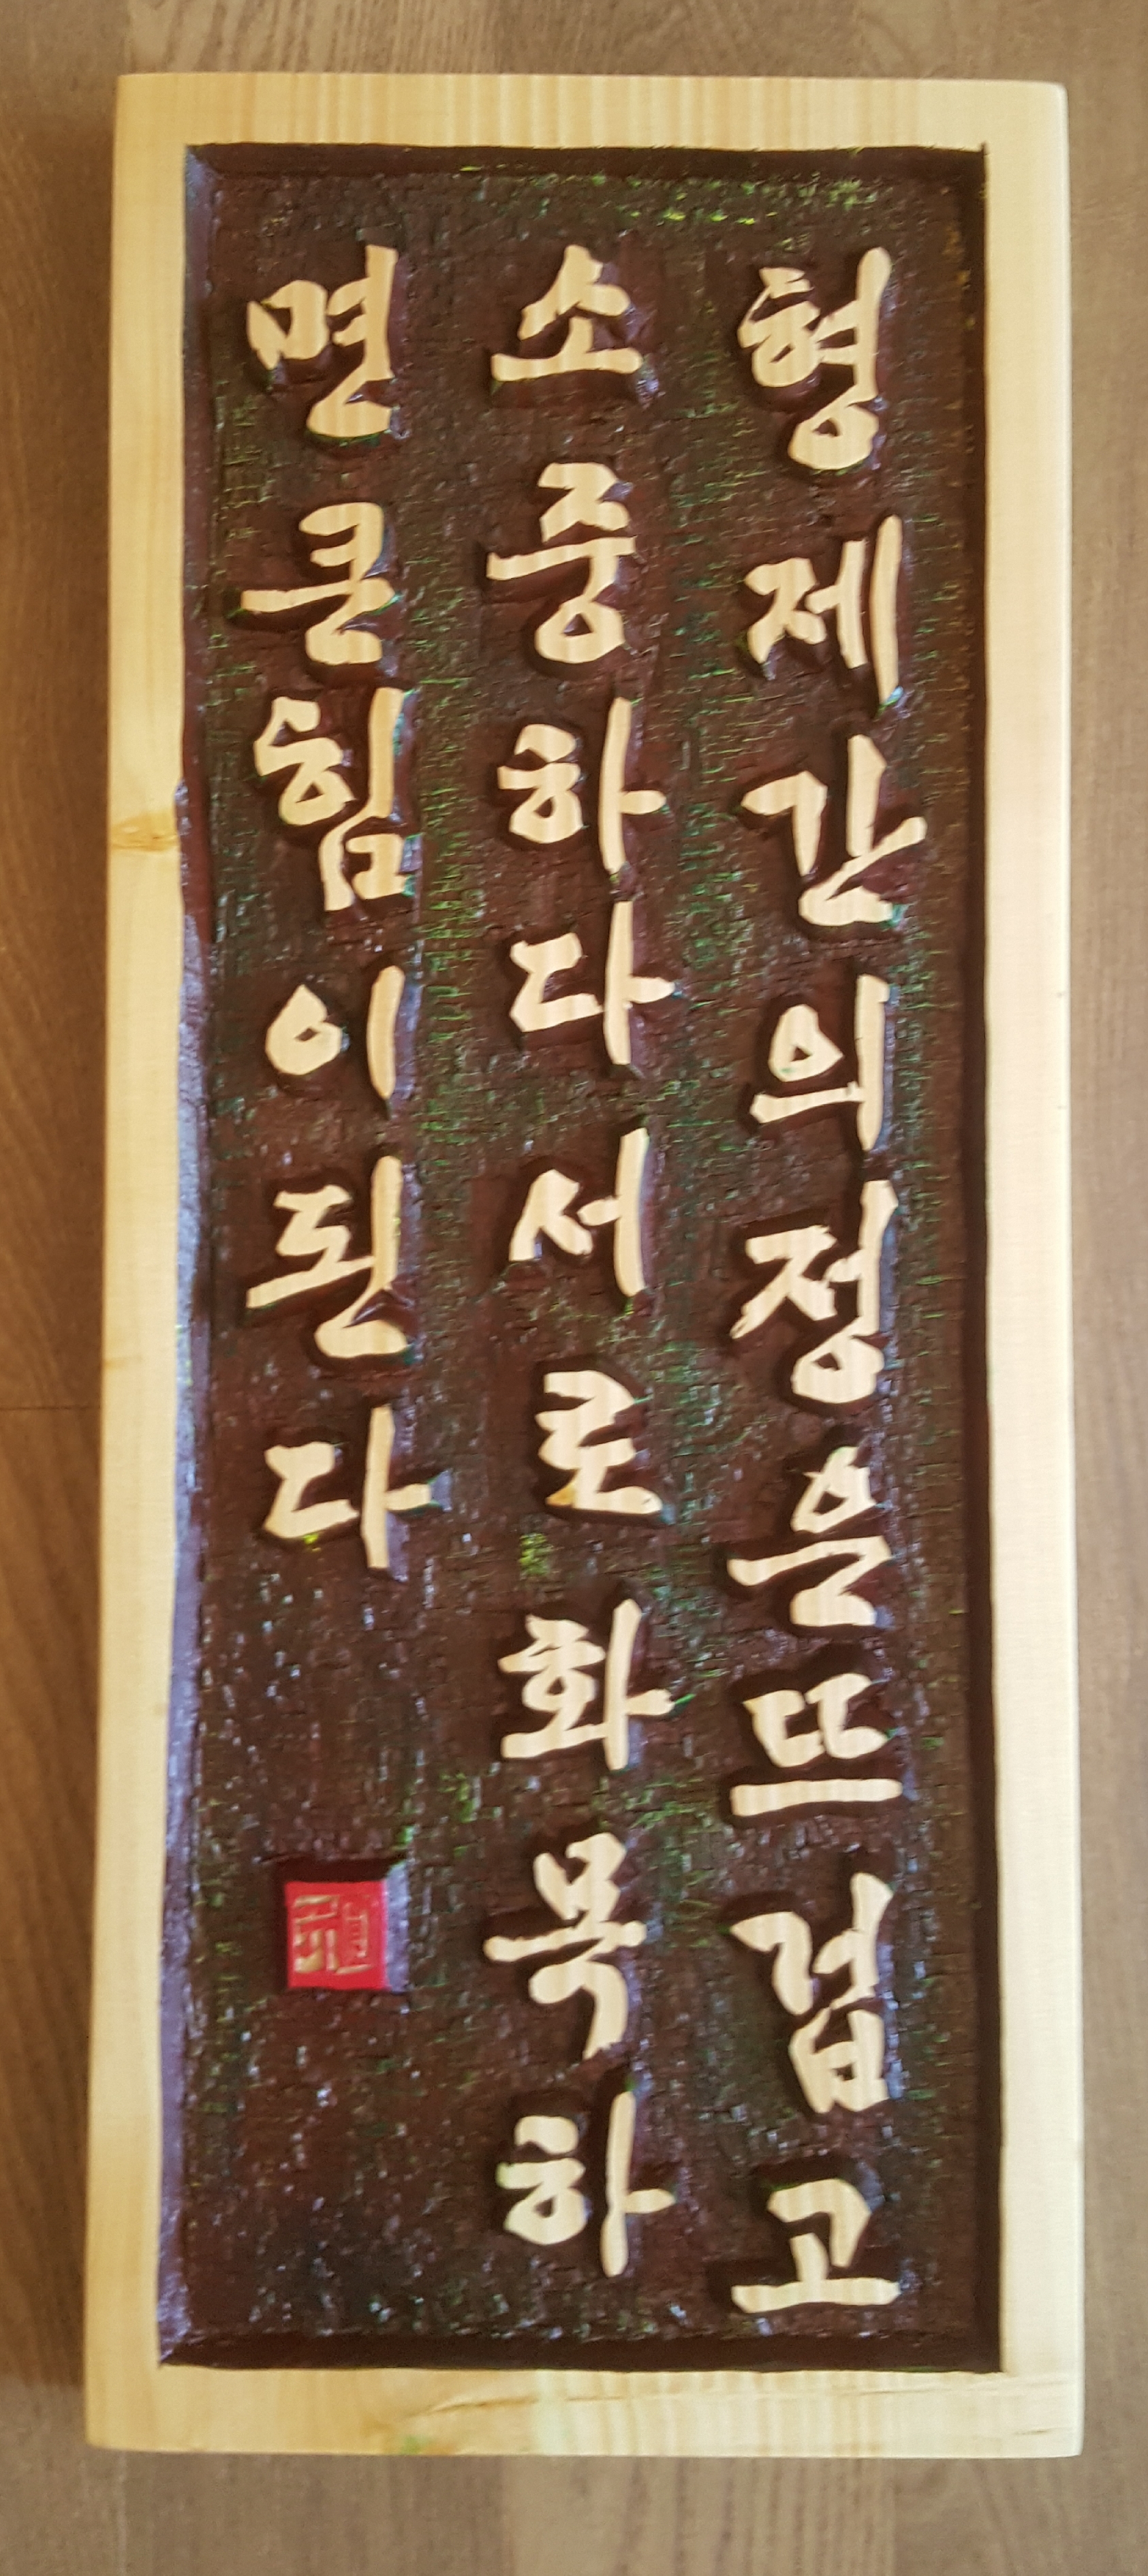 형제간의정은뜨겁고
소중하다서로화목하
면큰힘이된다